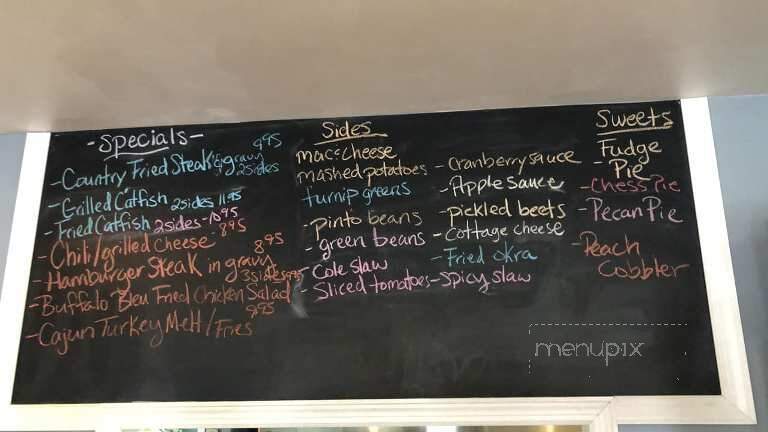 -Specials-
-Country Fried Steak & gravy 8 95
2 sides
-Grilled Catfish 2 sides 11 95
-Fried Catfish 2 sides-10 95
-Chili/grilled cheese 8 95
-Hamburger Steak in gravy 8 95
3 sides 9 95
-Buffalo Bleu Fried Chicken Salad
-Cajun Turkey Melt/Fries 8 95
Sides
mac & cheese
mashed potatoes
turnip greens
-pinto beans
-green beans
-Cole slaw
-Sliced tomatoes
-Cranberry sauce
-Apple Sauce
-pickled beets
-Cottage cheese
-Fried okra
-Spicy slaw
Sweets
Fudge
-Pie
-Chess Pie
-Pecan Pie
-Peach
Cobbler
menupix